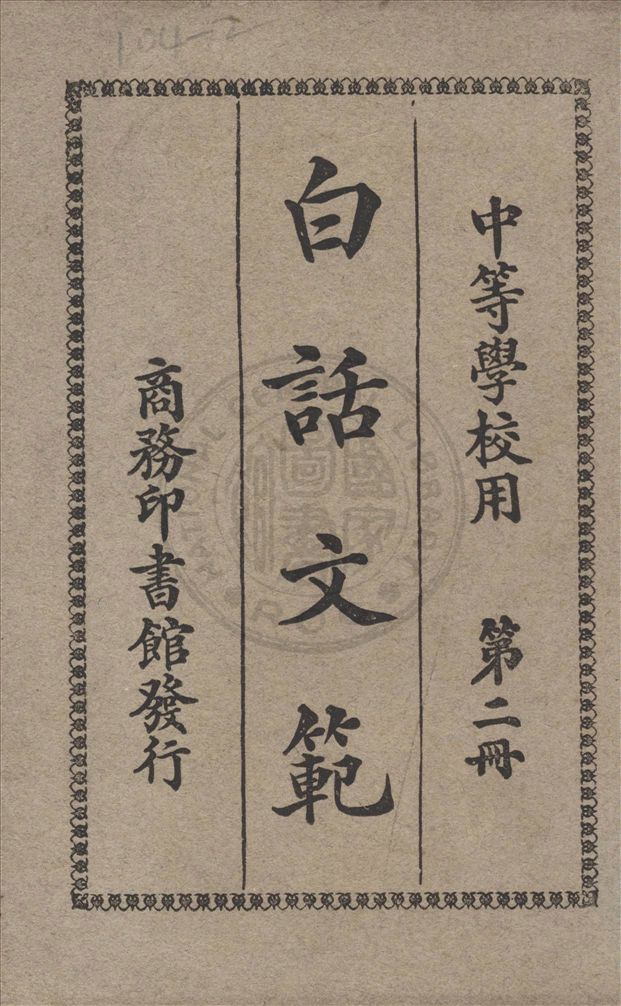 中等學校用　第二冊
白話文範
商務印書館發行